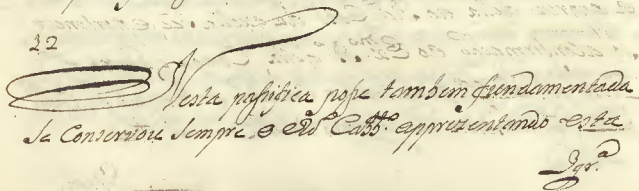 22
Nesta passifica posse tambem fundamentada
se Conservou sempre o Rdº Cabbº appresentando esta
Igrª